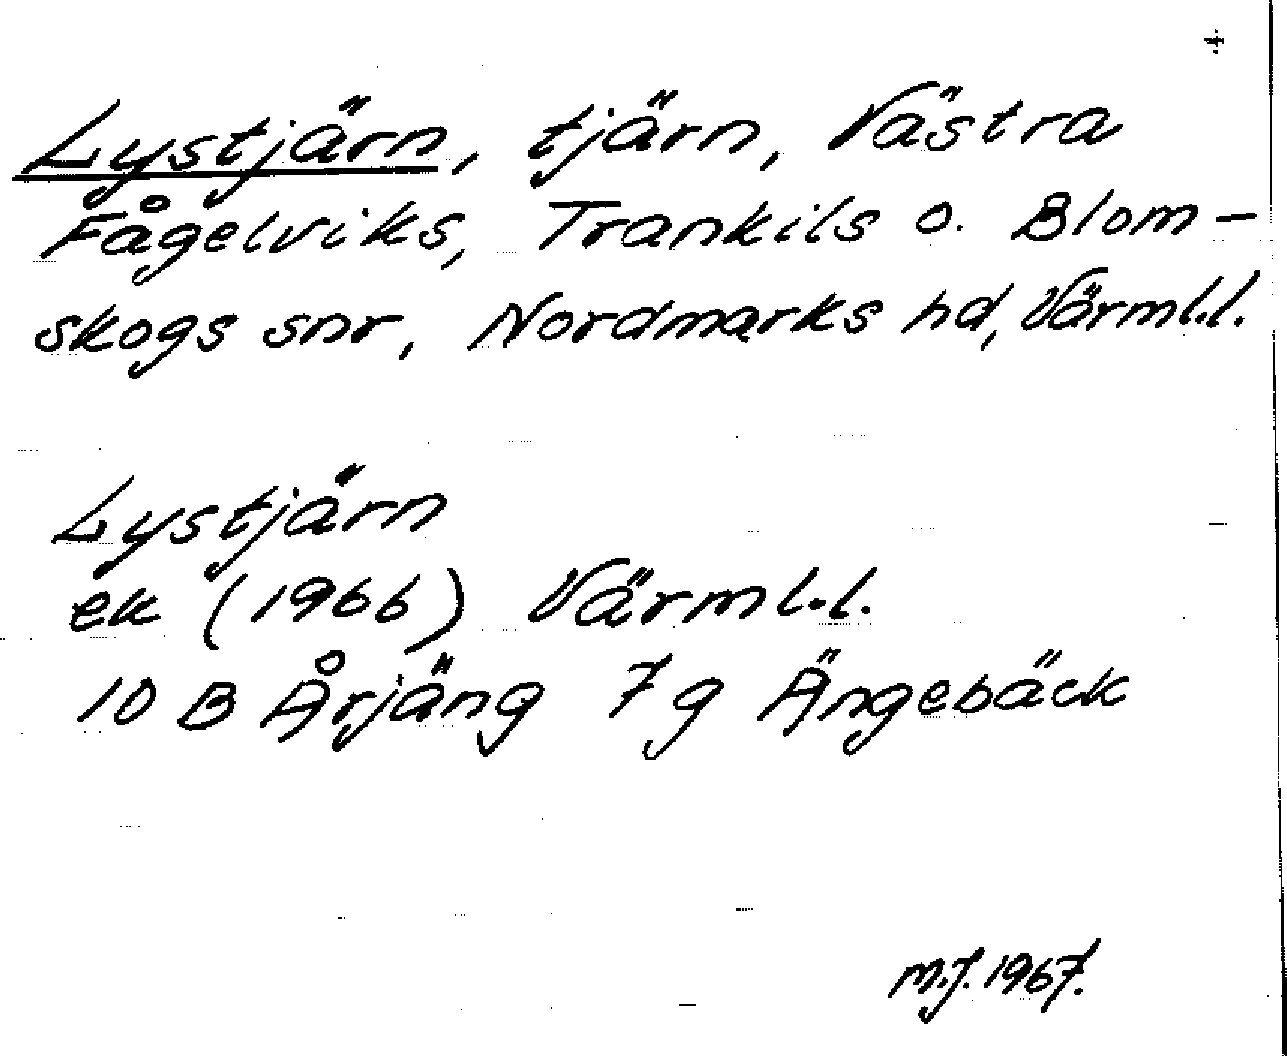 Lystjärn, tjärn, Västra
Fågelviks, Trankils o. Blom-
skogs snr, Nordmarks hd, Värml.l.
Lystjärn
ek (1966) Värml.l.
10 B Årjäng 7g Ängebäck
M.J. 1967.